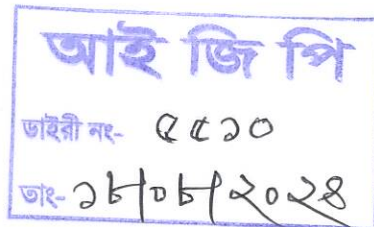 আই জি পি
ডাইরী নং- ৫৫১০
তাং- ১৮/০৮/২০২৪